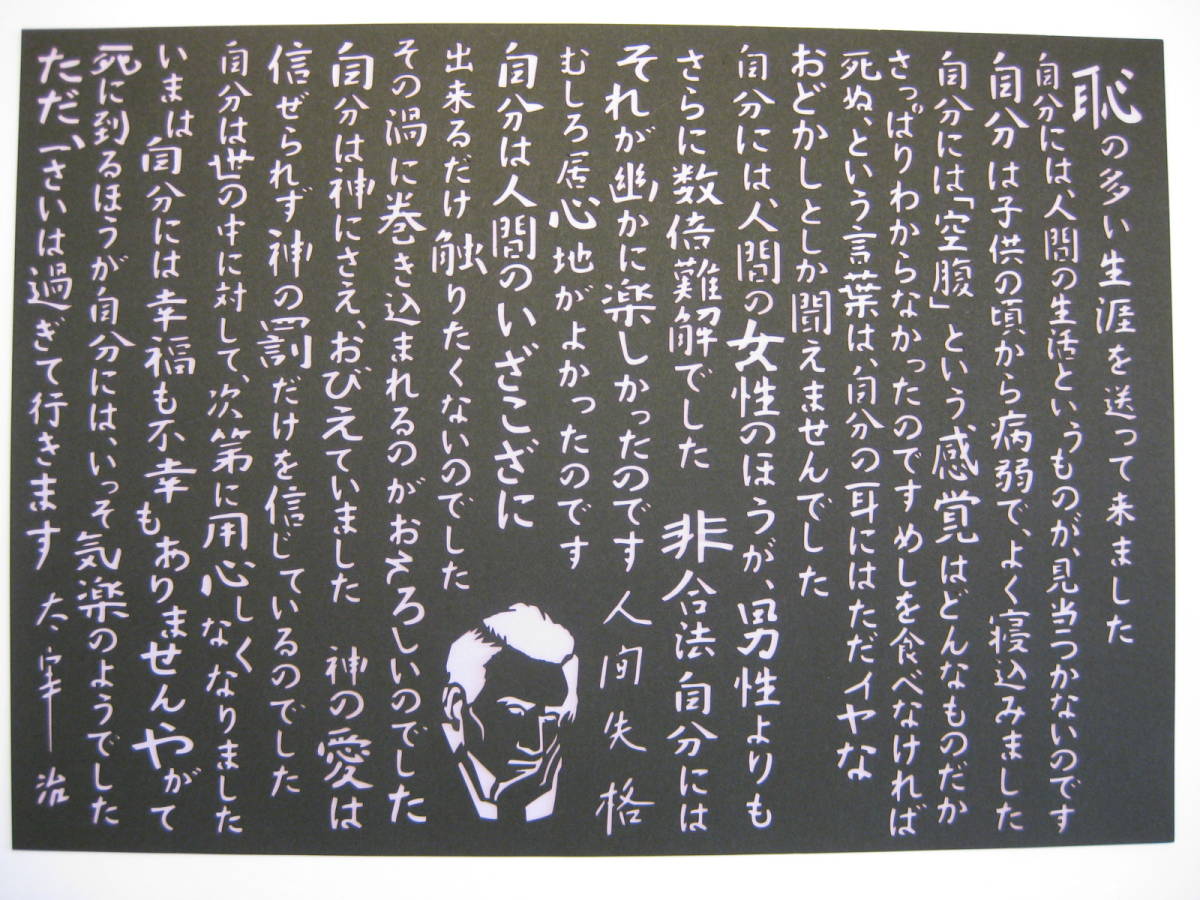 恥の多い生涯を送って来ました
自分には、人間の生活というものが、見当つかないのです
自分は子供の頃から病弱で、よく寝込みました
自分には「空腹」という、感覚はどんなものだか
さっぱりわからなかったのですめしを食べなければ
死ぬ、という言葉は、自分の耳にはただイヤな
おどかしとしか聞えませんでした
自分には、人間の女性のほうが、男性よりも
さらに数倍難解でした 非合法自分には
それが幽かに楽しかったのです 人間失格
むしろ居心地がよかったのです
自分は人間のいざこざに
出来るだけ触りたくないのでした
その渦に巻き込まれるのがおそろしいのでした
自分は神にさえ、おびえていました 神の愛は
信ぜられず神の罰だけを信じているのでした
自分は世の中に対して、次第に用心しなくなりました
いまは自分には幸福も不幸もありませんやがて
死に到るほうが自分には、いっそ気楽のようでした
ただ、一さいは過ぎて行きます 太宰治